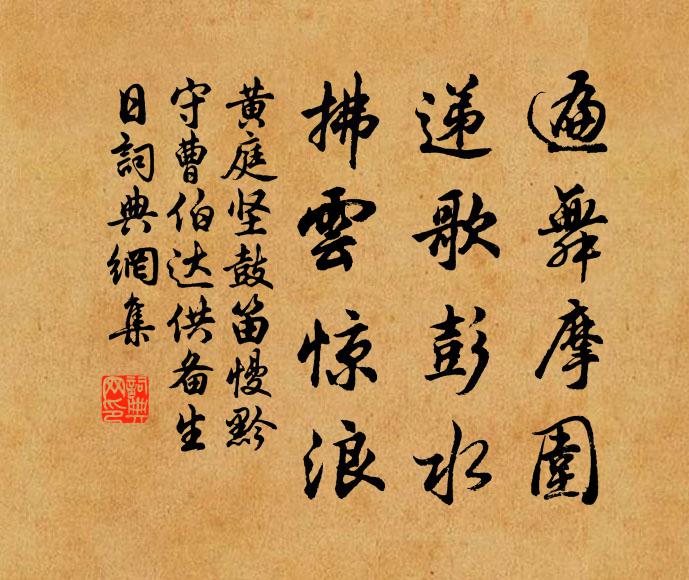 遍舞摩圍
递歌彭水
拂雲惊浪
黄庭坚鼓笛慢黔
守曹伯达供备生
日詞典網集
詞典
网印